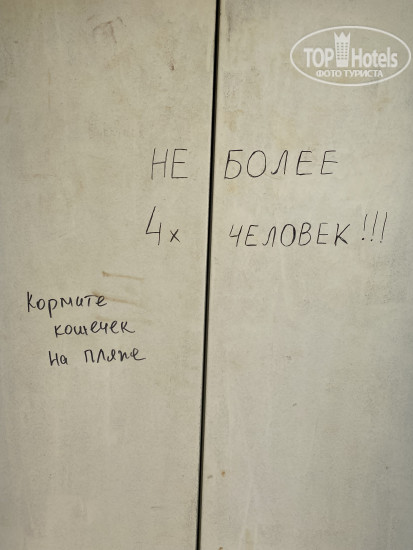 TOP Hotels
ФОТО ТУРИСТА
НЕ БОЛЕЕ
4х ЧЕЛОВЕК!!!
Кормите
кошечек
на пляже